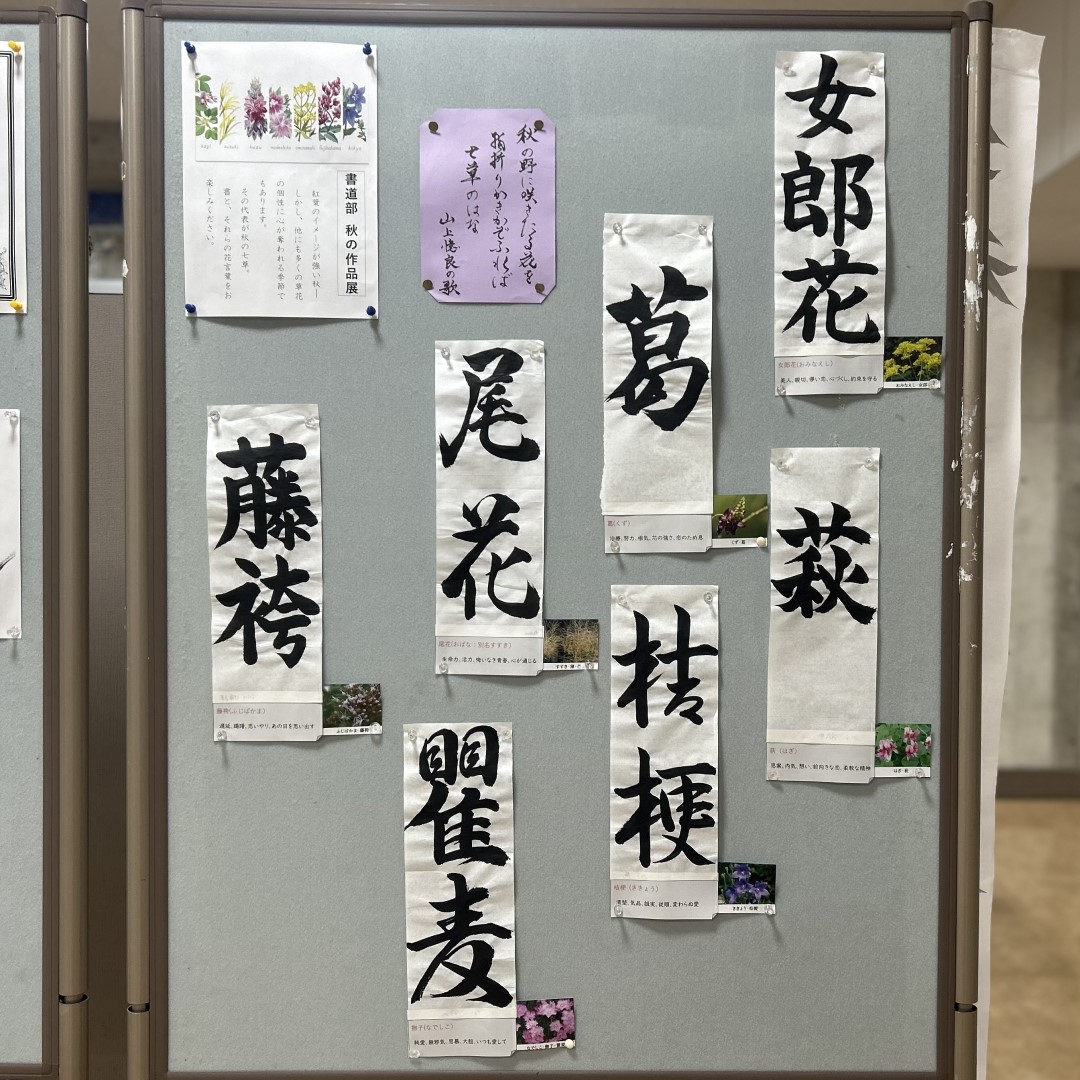 書道部 秋の作品展
紅葉のイメージが強い秋―
しかし、他にも多くの草花
の個性に心が奪われる季節で
もあります。
その代表が秋の七草。
書と、それらの花言葉をお
楽しみください。
秋の野に咲きたる花を
指折りかきかぞふれば
七草のはな
山上憶良の歌
女郎花
女郎花(おみなえし)
美人、親切、儚い恋、心づくし、約束を守る
おみなえし・女郎
葛
葛(くず)
治療、努力、根気、芯の強さ、恋のため息
くず・葛
萩
萩（はぎ）
思案、内気、想い、前向きな恋、柔軟な精神
はぎ・萩
尾花
尾花(おばな：別名すすき)
生命力、活力、悔いなき青春、心が通じる
桔梗
桔梗（ききょう）
清楚、気品、誠実、従順、変わらぬ愛
ききょう・桔梗
藤袴
藤袴(ふじばかま)
遅延、躊躇、思いやり、あの日を思い出す
ふじばかま・藤袴
瞿麦
撫子(なでしこ)
純愛、無邪気、思慕、大胆、いつも愛して